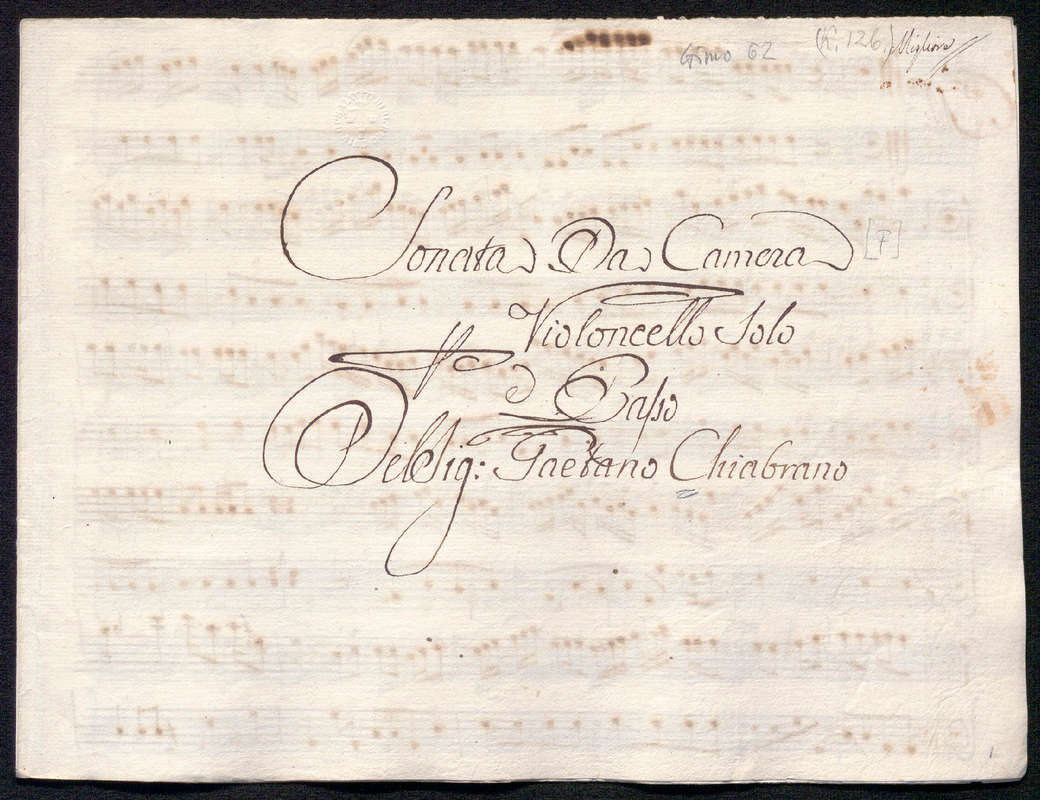 Gimo 62 (K. 126.) Migliore
Sonata Da Camera [F]
Violoncello Solo
e Basso
Del Sig: Gaetano Chiabrano
1